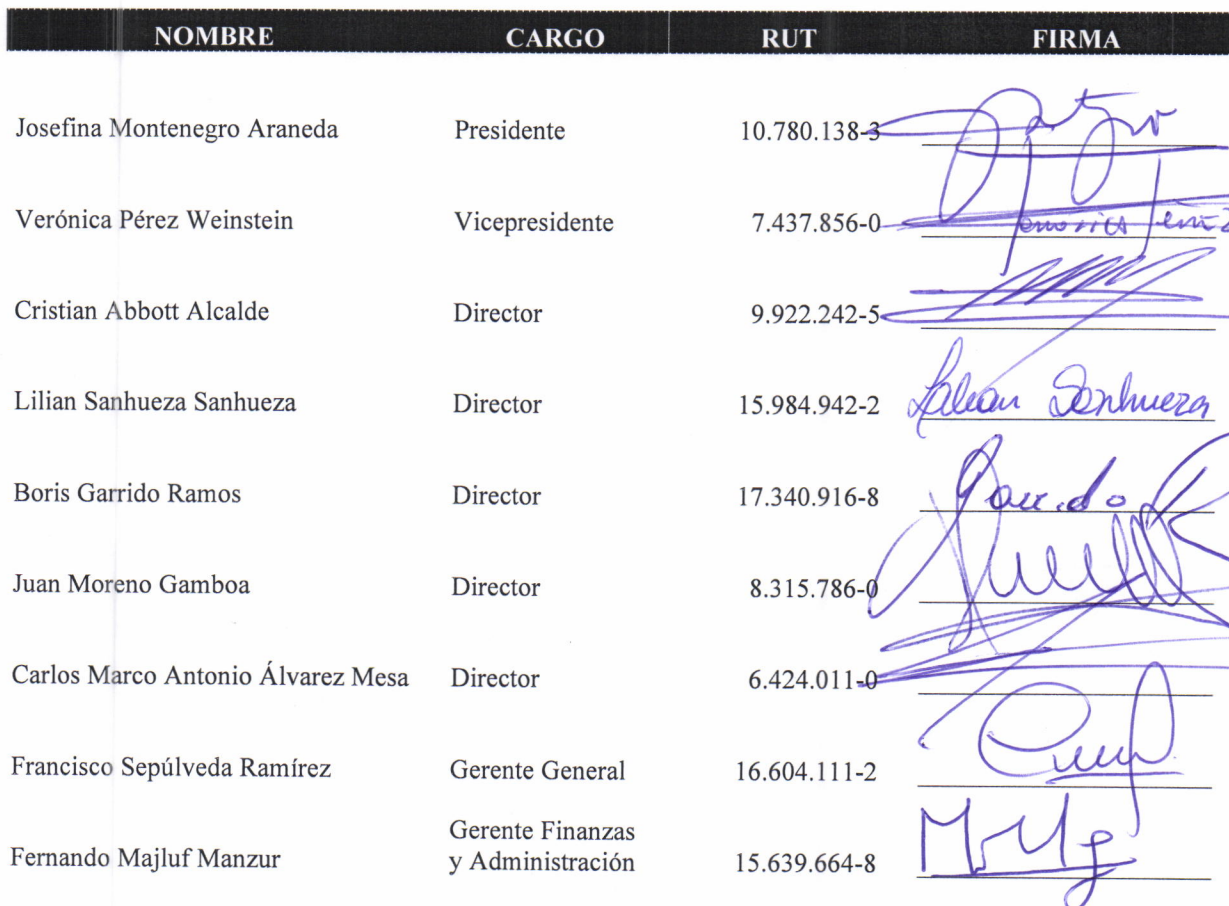 NOMBRE CARGO RUT FIRMA
Josefina Montenegro Araneda Presidente 10.780.138-3
Verónica Pérez Weinstein Vicepresidente 7.437.856-0
Cristian Abbott Alcalde Director 9.922.242-5
Lilian Sanhueza Sanhueza Director 15.984.942-2 Lilian Sanhueza
Boris Garrido Ramos Director 17.340.916-8 Garrido
Juan Moreno Gamboa Director 8.315.786-0
Carlos Marco Antonio Álvarez Mesa Director 6.424.011-0
Francisco Sepúlveda Ramírez Gerente General 16.604.111-2
Gerente Finanzas
Fernando Majluf Manzur y Administración 15.639.664-8